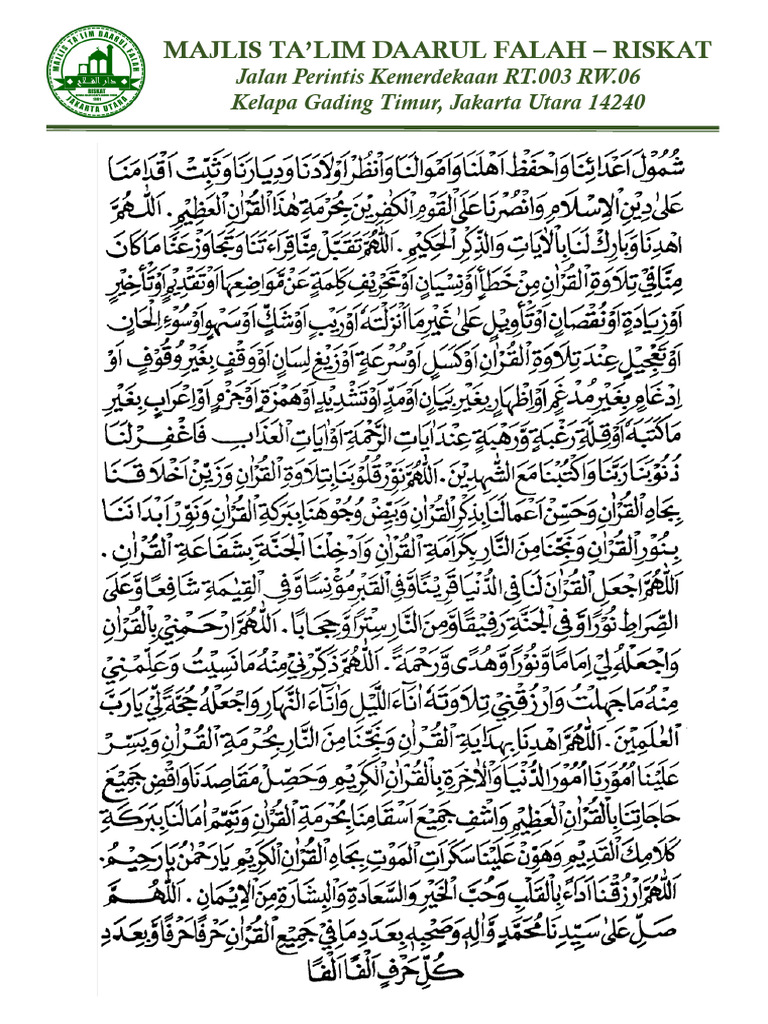 MAJLIS TA'LIM DAARUL FALAH
JAKARTA UTARA
RISKAT
MAJLIS TA’LIM DAARUL FALAH – RISKAT
Jalan Perintis Kemerdekaan RT.003 RW.06
Kelapa Gading Timur, Jakarta Utara 14240
شُمُوْلَ اَعْدَائِنَا وَاحْفَظْ اَهْلَنَا وَاَمْوَالَنَا وَانْظُرْ اَوْلَادَنَا وَدِيَارَنَا وَثَبِّتْ اَقْدَامَنَا
عَلٰى دِيْنِ الْاِسْلَامِ وَانْصُرْنَا عَلَى الْقَوْمِ الْكٰفِرِيْنَ بِحُرْمَةِ هٰذَا الْقُرْاٰنِ الْعَظِيْمِ. اَللّٰهُمَّ
اهْدِنَا وَبَارِكْ لَنَا بِالْاٰيَاتِ وَالذِّكْرِ الْحَكِيْمِ. اَللّٰهُمَّ تَقَبَّلْ مِنَّا قِرَاءَتَنَا وَتَجَاوَزْ عَنَّا مَا كَانَ
مِنَّا فِيْ تِلَاوَةِ الْقُرْاٰنِ مِنْ خَطَأٍ اَوْ نِسْيَانٍ اَوْ تَحْرِيْفِ كَلِمَةٍ عَنْ مَّوَاضِعِهَا اَوْ تَقْدِيْمٍ اَوْ تَأْخِيْرٍ
اَوْ زِيَادَةٍ اَوْ نُقْصَانٍ اَوْ تَأْوِيْلٍ عَلٰى غَيْرِ مَا اَنْزَلْتَهٗ اَوْ رَيْبٍ اَوْ شَكٍّ اَوْ سَهْوٍ اَوْ سُوْءِ اِلْحَانٍ
اَوْ تَعْجِيْلٍ عِنْدَ تِلَاوَةِ الْقُرْاٰنِ اَوْ كَسَلٍ اَوْ سُرْعَةٍ اَوْ زَيْغِ لِسَانٍ اَوْ وَقْفٍ بِغَيْرِ وُقُوْفٍ اَوْ
اِدْغَامٍ بِغَيْرِ مُدْغَمٍ اَوْ اِظْهَارٍ بِغَيْرِ بَيَانٍ اَوْ مَدٍّ اَوْ تَشْدِيْدٍ اَوْ هَمْزَةٍ اَوْ جَزْمٍ اَوْ اِعْرَابٍ بِغَيْرِ
مَا كَتَبَهٗ اَوْ قِلَّةِ رَغْبَةٍ وَّرَهْبَةٍ عِنْدَ اٰيَاتِ الرَّحْمَةِ اَوْ اٰيَاتِ الْعَذَابِ فَاغْفِرْ لَنَا
ذُنُوْبَنَا رَبَّنَا وَاكْتُبْنَا مَعَ الشّٰهِدِيْنَ. اَللّٰهُمَّ نَوِّرْ قُلُوْبَنَا بِتِلَاوَةِ الْقُرْاٰنِ وَزَيِّنْ اَخْلَاقَنَا
بِجَاهِ الْقُرْاٰنِ وَحَسِّنْ اَعْمَالَنَا بِذِكْرِ الْقُرْاٰنِ وَبَيِّضْ وُجُوْهَنَا بِبَرَكَةِ الْقُرْاٰنِ وَنَوِّرْ اَبْدَانَنَا
بِنُوْرِ الْقُرْاٰنِ وَنَجِّنَا مِنَ النَّارِ بِكَرَامَةِ الْقُرْاٰنِ وَاَدْخِلْنَا الْجَنَّةَ بِشَفَاعَةِ الْقُرْاٰنِ.
اَللّٰهُمَّ اجْعَلِ الْقُرْاٰنَ لَنَا فِى الدُّنْيَا قَرِيْنًا وَّفِى الْقَبْرِ مُؤْنِسًا وَّفِى الْقِيٰمَةِ شَافِعًا وَّعَلَى
الصِّرَاطِ نُوْرًا وَّفِى الْجَنَّةِ رَفِيْقًا وَّمِنَ النَّارِ سِتْرًا وَّحِجَابًا. اَللّٰهُمَّ ارْحَمْنِيْ بِالْقُرْاٰنِ
وَاجْعَلْهُ لِيْ اِمَامًا وَّنُوْرًا وَّهُدًى وَّرَحْمَةً. اَللّٰهُمَّ ذَكِّرْنِيْ مِنْهُ مَا نَسِيْتُ وَعَلِّمْنِيْ
مِنْهُ مَا جَهِلْتُ وَارْزُقْنِيْ تِلَاوَتَهٗ اٰنَاءَ اللَّيْلِ وَاٰنَاءَ النَّهَارِ وَاجْعَلْهُ حُجَّةً لِّيْ يَا رَبَّ
الْعٰلَمِيْنَ. اَللّٰهُمَّ اهْدِنَا بِهِدَايَةِ الْقُرْاٰنِ وَنَجِّنَا مِنَ النَّارِ بِحُرْمَةِ الْقُرْاٰنِ وَيَسِّرْ
عَلَيْنَا اُمُوْرَنَا اُمُوْرَ الدُّنْيَا وَالْاٰخِرَةِ بِالْقُرْاٰنِ الْكَرِيْمِ وَحَصِّلْ مَقَاصِدَنَا وَاقْضِ جَمِيْعَ
حَاجَاتِنَا بِالْقُرْاٰنِ الْعَظِيْمِ وَاشْفِ جَمِيْعَ اَسْقَامِنَا بِحُرْمَةِ الْقُرْاٰنِ وَتَمِّمْ اٰمَالَنَا بِبَرَكَةِ
كَلَامِكَ الْقَدِيْمِ وَهَوِّنْ عَلَيْنَا سَكَرَاتِ الْمَوْتِ بِجَاهِ الْقُرْاٰنِ الْكَرِيْمِ يَا رَحْمٰنُ يَا رَحِيْمُ.
اَللّٰهُمَّ ارْزُقْنَا اَدَاءً بِالْقَلْبِ وَحُبَّ الْخَيْرِ وَالسَّعَادَةِ وَالْبِشَارَةِ مِنَ الْاِيْمَانِ. اَللّٰهُمَّ
صَلِّ عَلٰى سَيِّدِنَا مُحَمَّدٍ وَّاٰلِهٖ وَصَحْبِهٖ بِعَدَدِ مَا فِيْ جَمِيْعِ الْقُرْاٰنِ حَرْفًا حَرْفًا وَّبِعَدَدِ
كُلِّ حَرْفٍ اَلْفًا اَلْفًا